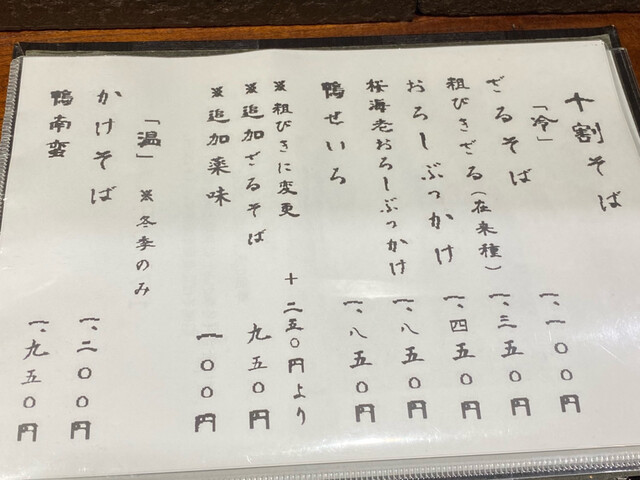 十割そば
「冷」
ざるそば 一、一〇〇円
粗びきざる(在来種) 一、三五〇円
おろしぶっかけ 一、四五〇円
桜海老おろしぶっかけ 一、八五〇円
鴨せいろ 一、八五〇円
※粗びきに変更 +二五〇円より
※追加ざるそば 九五〇円
※追加薬味 一〇〇円
「温」※冬季のみ
かけそば 一、二〇〇円
鴨南蛮 一、九五〇円